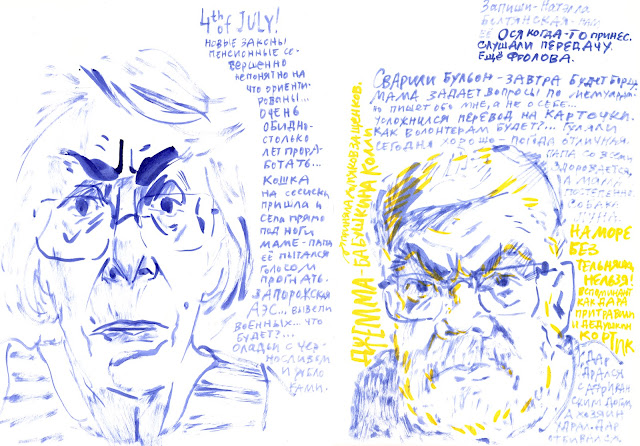 4th
of JULY!
НОВЫЕ ЗАКОНЫ
ПЕНСИОННЫЕ СО-
ВЕРШЕННО
НЕПОНЯТНО НА
ЧТО ОРИЕНТИ-
РОВАНЫ...
ОЧЕНЬ
ОБИДНО-
СТОЛЬКО
ЛЕТ ПРОРА-
БОТАТЬ...
КОШКА
НА СЕССИЮ
ПРИШЛА И
СЕЛА ПРЯМО
ПОД НОГИ
МАМЕ - ПАПА
ЕЁ ПЫТАЛСЯ
ГОЛОСОМ
ПРОГНАТЬ.
ЗАПОРОЖСКАЯ
АЭС... ВЫВЕЛИ
ВОЕННЫХ... ЧТО
БУДЕТ?...
ОЛАДЬИ С ЧЕР-
НОСЛИВОМ
И ЯБЛО
КАМИ.
ЗАПИШИ - НАТЭЛЛА
БОЛТЯНСКАЯ - НАМ
ЕЁ ОСЯ КОГДА-ТО ПРИНЕС.
СЛУШАЛИ ПЕРЕДАЧУ.
ЕЩЁ ФРОЛОВА.
СВАРИЛИ БУЛЬОН - ЗАВТРА БУДЕТ БОРЩ.
МАМА ЗАДАЕТ ВОПРОСЫ ПО МЕМУАРАМ
ПИШЕТ ОБО МНЕ, А НЕ О СЕБЕ...
УСЛОЖНИЛСЯ ПЕРЕВОД НА КАРТОЧКИ.
КАК ВОЛОНТЕРАМ БУДЕТ?... ГУЛЯЛИ
СЕГОДНЯ ХОРОШО - ПОГОДА ОТЛИЧНАЯ.
ПАПА СО ВСЕМИ
ЗДОРОВАЕТСЯ,
ПОСТЕПЕННО
СОБАКИ
ЛУНА.
НА МОРЕ
БЕЗ
ТЕЛЬНЯШКИ
НЕЛЬЗЯ!
ВСПОМИНАЕМ
КАК ДАРА
ПРИТРАВИЛИ
И ДЕДУШКИН
КОРТИК
ДАР
ДРАЛСЯ
С
А ХОЗЯИН
ДАР
ОТБИВАЛСЯ
ДЖЕММА - БАБУШКОНА КОЛЛИ
ЩЕНКОВ.